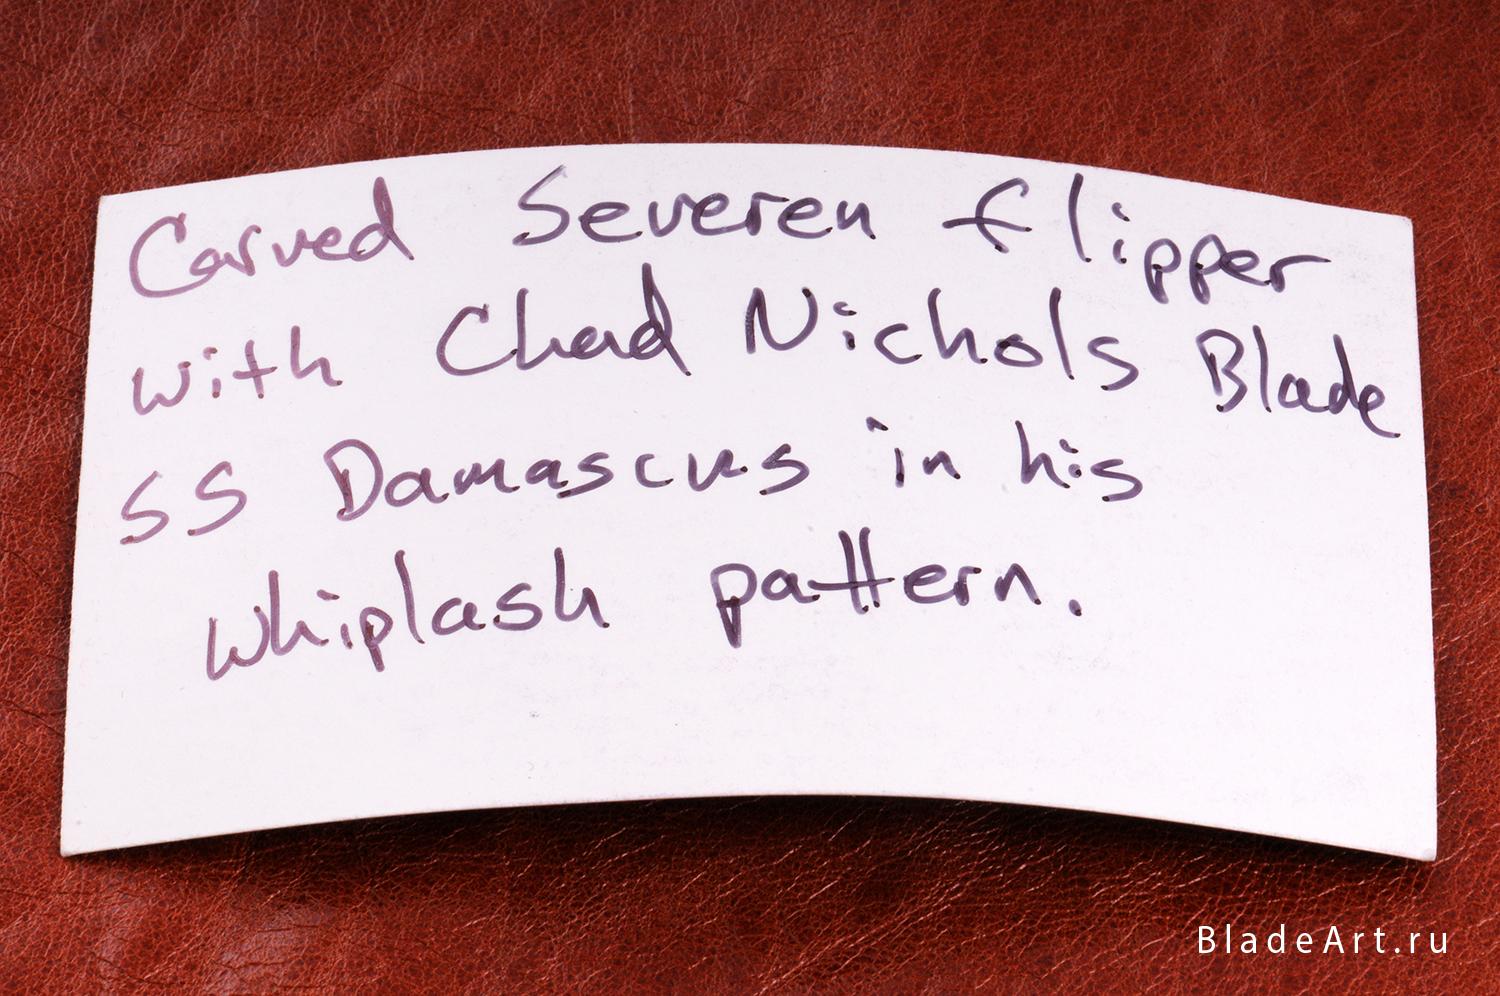 Carved Severen flipper
with Chad Nichols Blade
SS Damascus in his
Whiplash pattern.
BladeArt.ru